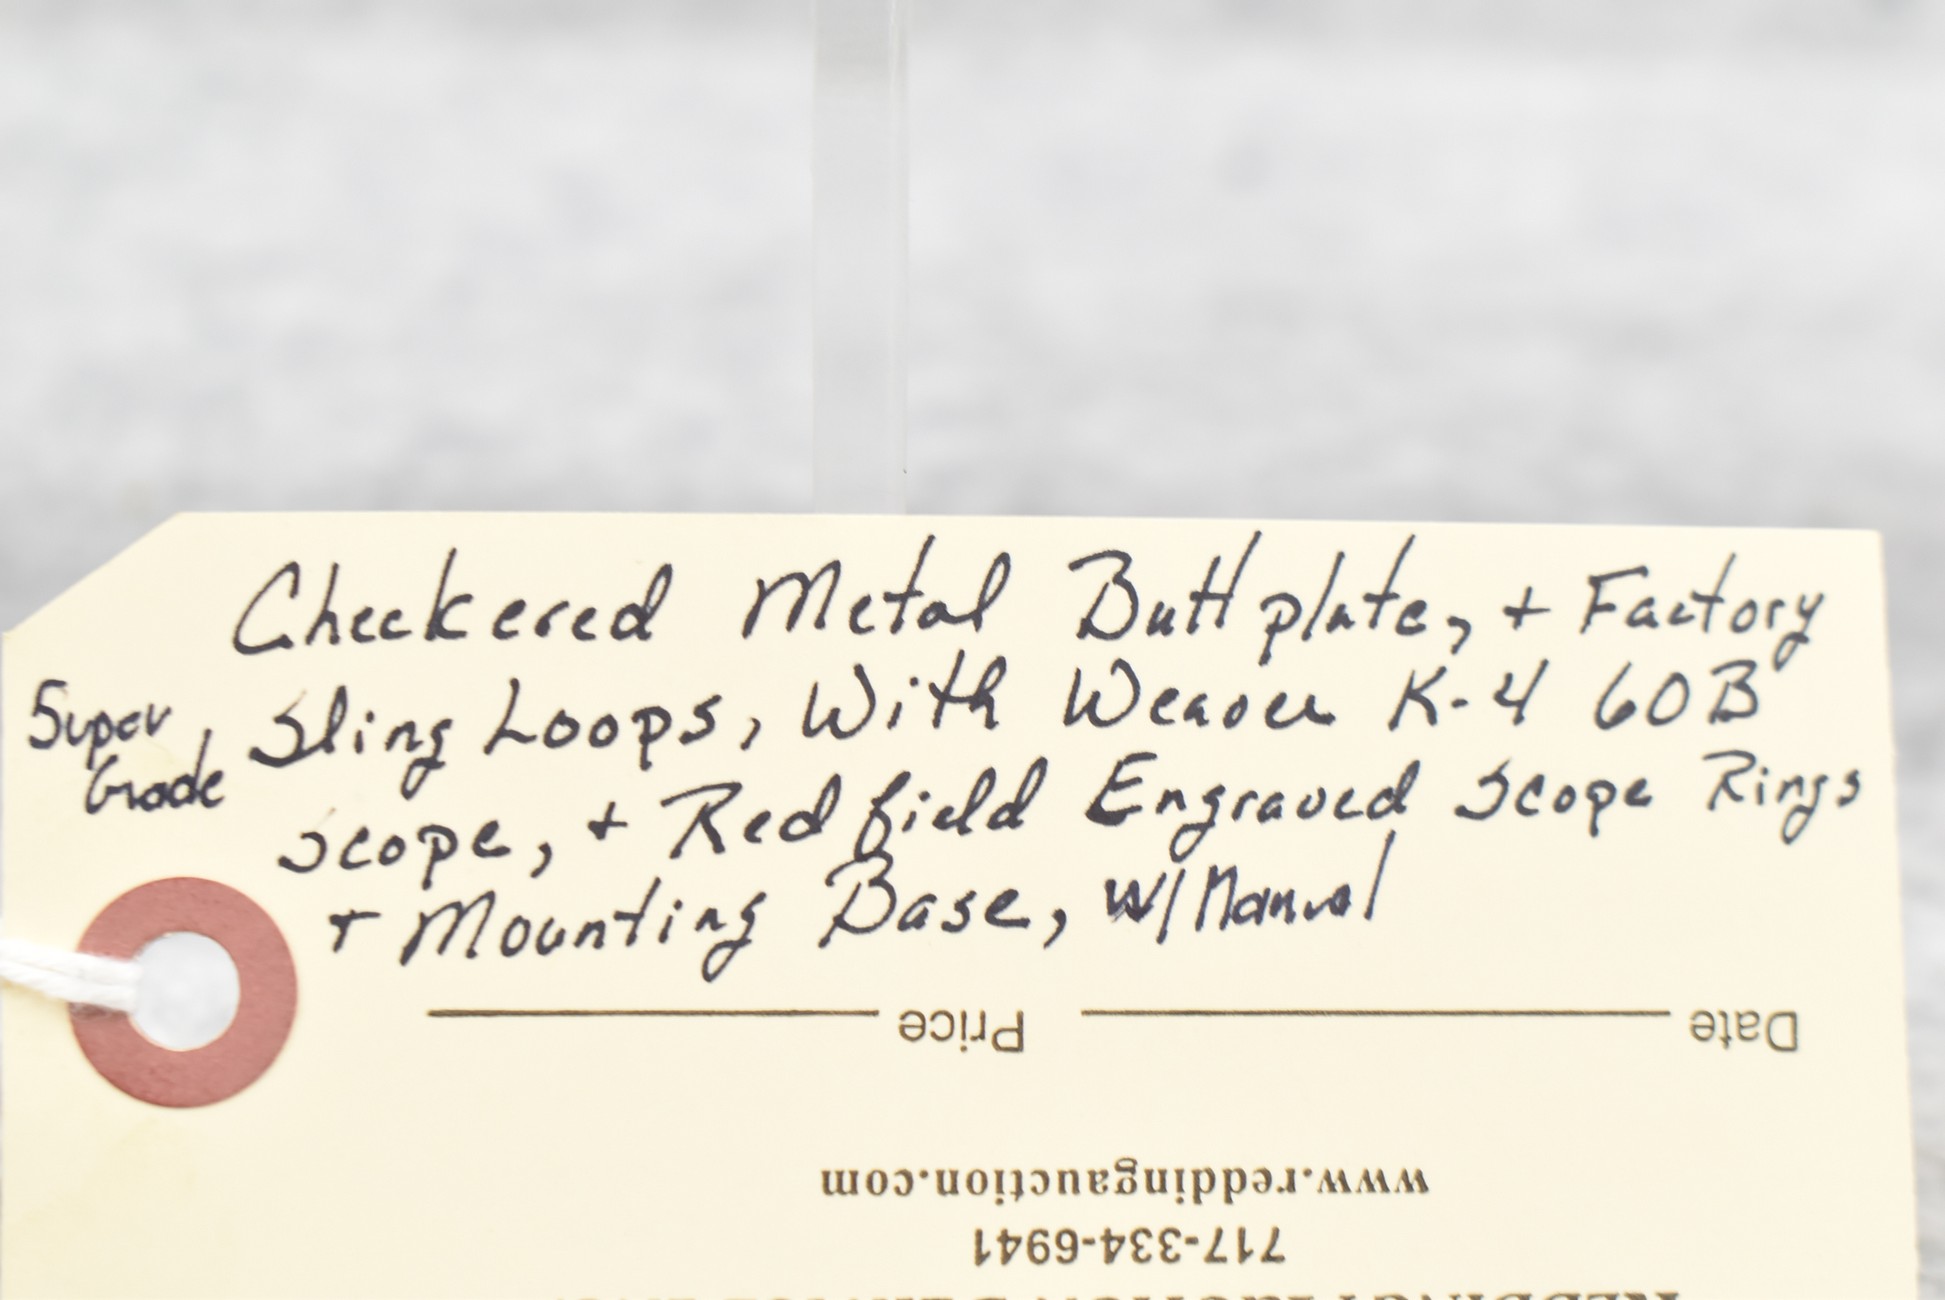 Checkered Metal Buttplate, + Factory
Super Grade, Sling Loops, With Weaver K-4 60B
Scope, + Redfield Engraved Scope Rings
+ Mounting Base, w/Manual
Date Price
www.reddingauction.com
717-334-6941